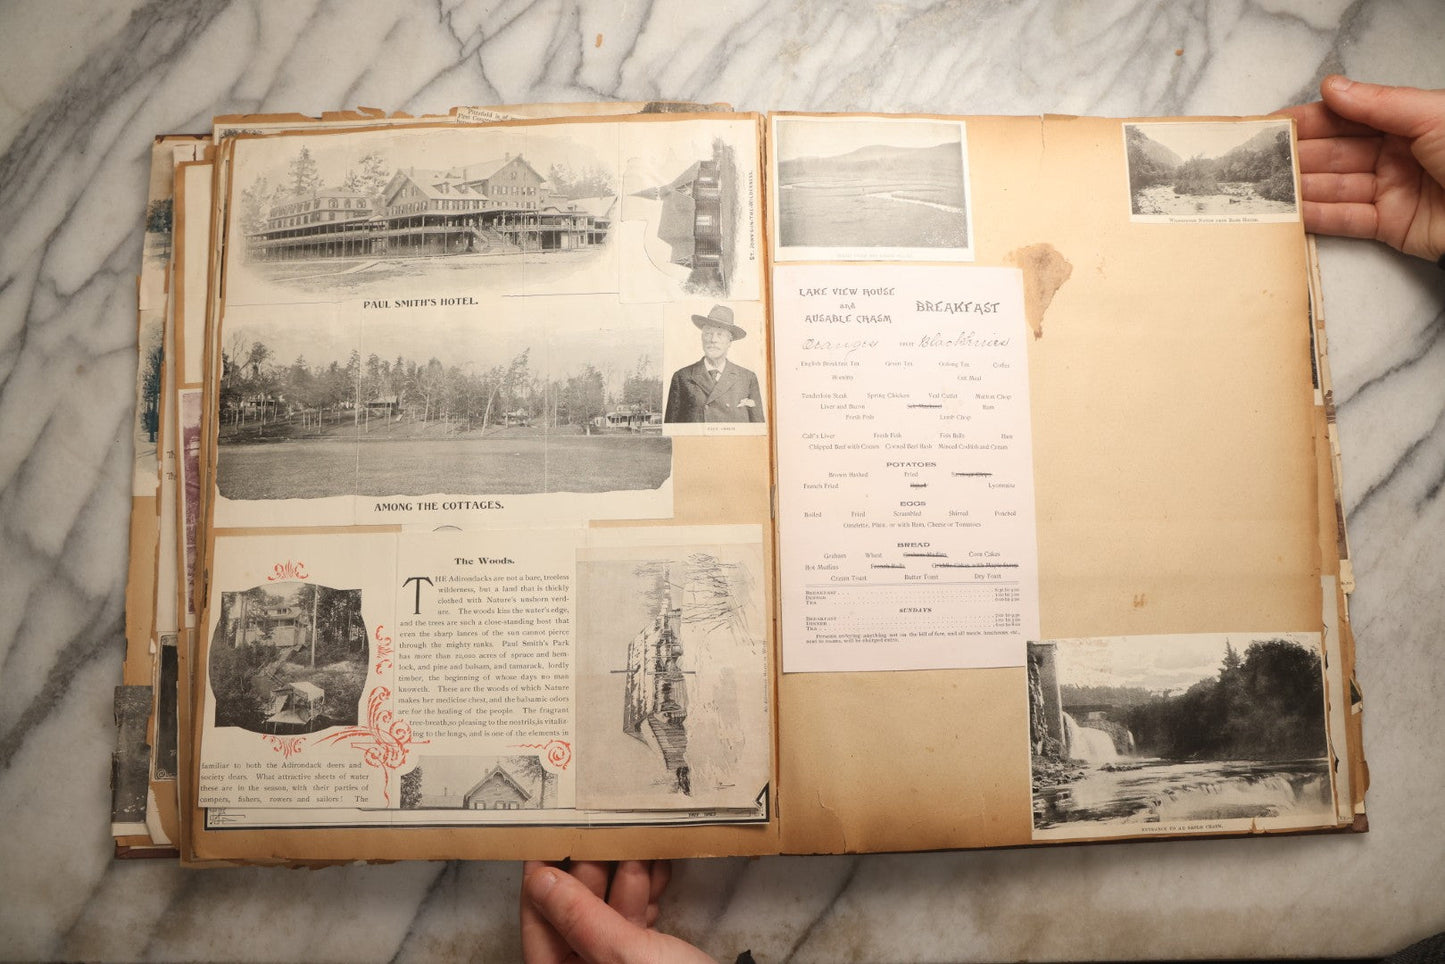 Pittsfield is
PAUL SMITH'S HOTEL.
ST. JOHN'S-IN-THE-WILDERNESS.
PAUL SMITH
AMONG THE COTTAGES.
The Woods.
THE Adirondacks are not a bare, treeless
wilderness, but a land that is thickly
clothed with Nature's unshorn verd-
ure. The woods kiss the water's edge,
and the trees are such a close-standing host that
even the sharp lances of the sun cannot pierce
through the mighty ranks. Paul Smith's Park
has more than 20,000 acres of spruce and hem-
lock, and pine and balsam, and tamarack, lordly
timber, the beginning of whose days no man
knoweth. These are the woods of which Nature
makes her medicine chest, and the balsamic odors
are for the healing of the people. The fragrant
tree-breath, so pleasing to the nostrils, is vitaliz-
ing to the lungs, and is one of the elements in
familiar to both the Adirondack deers and
society dears. What attractive sheets of water
these are in the season, with their parties of
campers, fishers, rowers and sailors! The
LAKE VIEW HOUSE
and
AUSABLE CHASM
BREAKFAST
Oranges Blackberries
English Breakfast Tea Green Tea Oolong Tea Coffee
Hominy Oat Meal
Tenderloin Steak Spring Chicken Veal Cutlet Mutton Chop
Liver and Bacon Salt Mackerel Ham
Fresh Fish Lamb Chop
Calf's Liver Fresh Fish Fish Balls Ham
Chipped Beef with Cream Corned Beef Hash Minced Codfish and Cream
POTATOES
Brown Hashed Fried Saratoga Chips
French Fried Baked Lyonnaise
EGGS
Boiled Fried Scrambled Shirred Poached
Omelette, Plain, or with Ham, Cheese or Tomatoes
BREAD
Graham Wheat Graham Muffins Corn Cakes
Hot Muffins French Rolls Griddle Cakes, with Maple Syrup
Cream Toast Butter Toast Dry Toast
BREAKFAST
DINNER
TEA
SUNDAYS
BREAKFAST
DINNER
TEA
Persons ordering anything not on the bill of fare, and all meals, luncheons, etc.,
sent to rooms, will be charged extra.
WILMINGTON NOTCH
ENTRANCE TO AU SABLE CHASM.